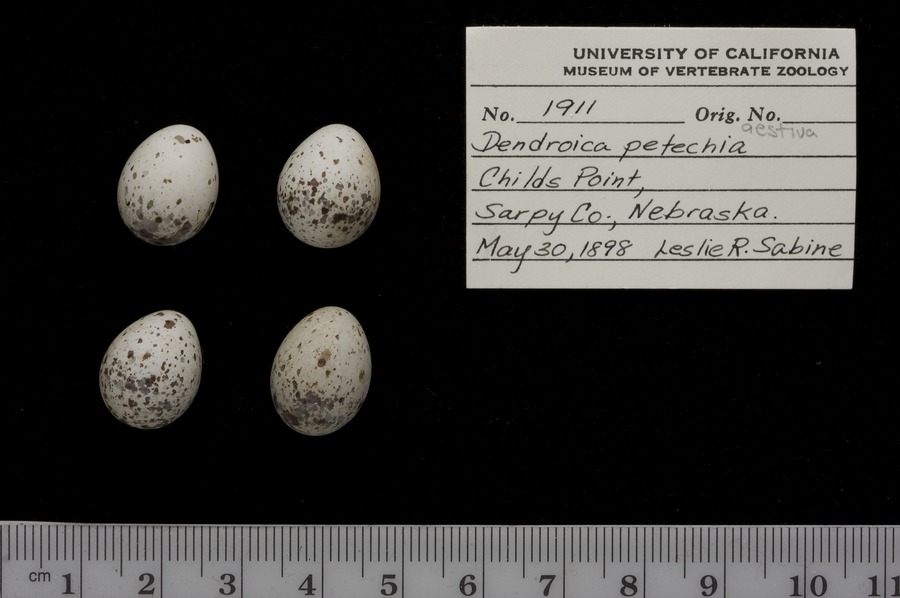 UNIVERSITY OF CALIFORNIA
MUSEUM OF VERTEBRATE ZOOLOGY
No. 1911 Orig. No.
aestiva
Dendroica petechia
Childs Point,
Sarpy Co., Nebraska.
May 30, 1898 Leslie R. Sabine
cm 1 2 3 4 5 6 7 8 9 10 11